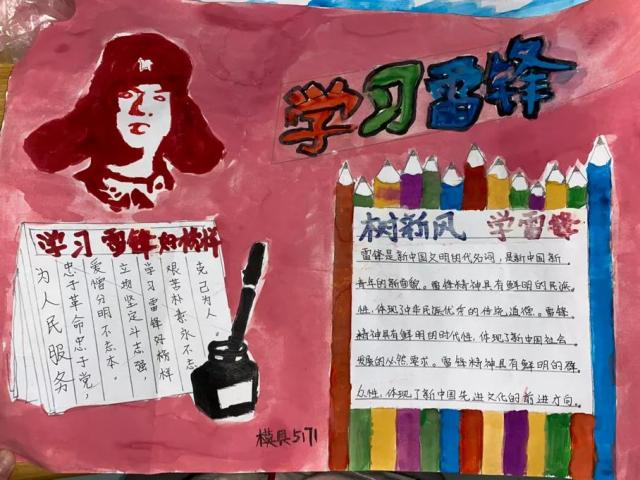 学习雷锋
学习 雷锋 好榜样
为人民服务
忠于革命忠于党，
爱憎分明不忘本，
立场坚定斗志强，
学习雷锋好榜样
艰苦朴素永不忘
克己为人。
树新风 学雷锋
雷锋是新中国文明的代名词，是新中国新
青年的新面貌。雷锋精神具有鲜明的民族
性，体现了中华民族优秀的传统道德。雷锋
精神具有鲜明的时代性，体现了新中国社会
发展的必然要求。雷锋精神具有鲜明的群
众性，体现了新中国先进文化的前进方向。
模具5171